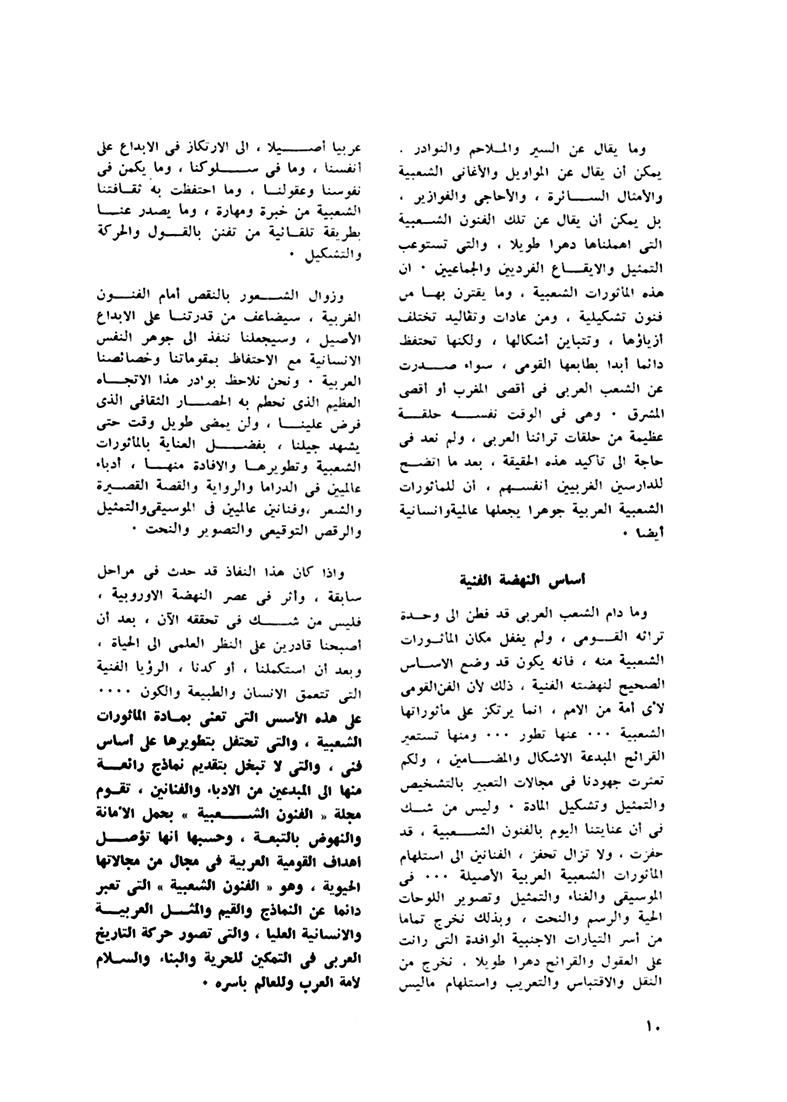 وما يقال عن السير والملاحم والنوادر .
يمكن أن يقال عن المواويل والأغانى الشعبية
والأمثال السائرة ، والأحاجى والفوازير ،
بل يمكن أن يقال عن تلك الفنون الشعبية
التى اهملناها دهرا طويلا ، والتى تستوعب
التمثيل والايقاع الفرديين والجماعيين ٠ ان
هذه المأثورات الشعبية ، وما يقترن بها من
فنون تشكيلية ، ومن عادات وتقاليد تختلف
أزياؤها ، وتتباين أشكالها ، ولكنها تحتفظ
دائما أبدا بطابعها القومى ، سواء صدرت
عن الشعب العربى فى أقصى المغرب أو أقصى
المشرق ٠ وهى فى الوقت نفسه حلقة
عظيمة من حلقات تراثنا العربى ، ولم نعد فى
حاجة الى تأكيد هذه الحقيقة ، بعد ما اتضح
للدارسين الغربيين أنفسهم ، أن للمأثورات
الشعبية العربية جوهرا يجعلها عالمية وانسانية
أيضا ٠
أساس النهضة الفنية
وما دام الشعب العربى قد فطن الى وحدة
تراثه القومى ، ولم يغفل مكان المأثورات
الشعبية منه ، فانه يكون قد وضع الاساس
الصحيح لنهضته الفنية ، ذلك لأن الفن القومى
لأى أمة من الامم ، انما يرتكز على مأثوراتها
الشعبية ٠٠٠ عنها تطور ٠٠٠ ومنها تستعير
القرائح المبدعة الاشكال والمضامين ، ولكم
تعثرت جهودنا فى مجالات التعبير بالتشخيص
والتمثيل وتشكيل المادة ٠ وليس من شك
فى أن عنايتنا اليوم بالفنون الشعبية ، قد
حفزت ، ولا تزال تحفز ، الفنانين الى استلهام
المأثورات الشعبية العربية الأصيلة ٠٠٠ فى
الموسيقى والغناء والتمثيل وتصوير اللوحات
الحية والرسم والنحت ، وبذلك نخرج تماما
من أسر التيارات الاجنبية الوافدة التى رانت
على العقول والقرائح دهرا طويلا . نخرج من
النقل والاقتباس والتعريب واستلهام ماليس
عربيا أصيلا ، الى الارتكاز فى الابداع على
أنفسنا ، وما فى سلوكنا ، وما يكمن فى
نفوسنا وعقولنا ، وما احتفظت به ثقافتنا
الشعبية من خبرة ومهارة ، وما يصدر عنا
بطريقة تلقائية من تفنن بالقول والحركة
والتشكيل ٠
وزوال الشعور بالنقص أمام الفنون
الغربية ، سيضاعف من قدرتنا على الابداع
الأصيل ، وسيجعلنا ننفذ الى جوهر النفس
الانسانية مع الاحتفاظ بمقوماتنا وخصائصنا
العربية ٠ ونحن نلاحظ بوادر هذا الاتجاه
العظيم الذى نحطم به الحصار الثقافى الذى
فرض علينا ، ولن يمضى طويل وقت حتى
يشهد جيلنا ، بفضل العناية بالمأثورات
الشعبية وتطويرها والافادة منها ، أدباء
عالميين فى الدراما والرواية والقصة القصيرة
والشعر ،وفنانين عالميين فى الموسيقى والتمثيل
والرقص التوقيعى والتصوير والنحت ٠
واذا كان هذا النفاذ قد حدث فى مراحل
سابقة ، وأثر فى عصر النهضة الاوروبية ،
فليس من شك فى تحققه الآن ، بعد أن
أصبحنا قادرين على النظر العلمى الى الحياة ،
وبعد أن استكملنا ، أو كدنا ، الرؤيا الفنية
التى تتعمق الانسان والطبيعة والكون ٠٠٠٠
على هذه الأسس التى تعنى بمادة المأثورات
الشعبية ، والتى تحتفل بتطويرها على أساس
فنى ، والتى لا تبخل بتقديم نماذج رائعة
منها الى المبدعين من الادباء والفنانين ، تقوم
مجلة « الفنون الشعبية » بحمل الأمانة
والنهوض بالتبعة ، وحسبها أنها تؤصل
أهداف القومية العربية فى مجال من مجالاتها
الحيوية ، وهو « الفنون الشعبية » التى تعبر
دائما عن النماذج والقيم والمثل العربية
والانسانية العليا ، والتى تصور حركة التاريخ
العربى فى التمكين للحرية والبناء والسلام
لأمة العرب وللعالم بأسره ٠
١٠